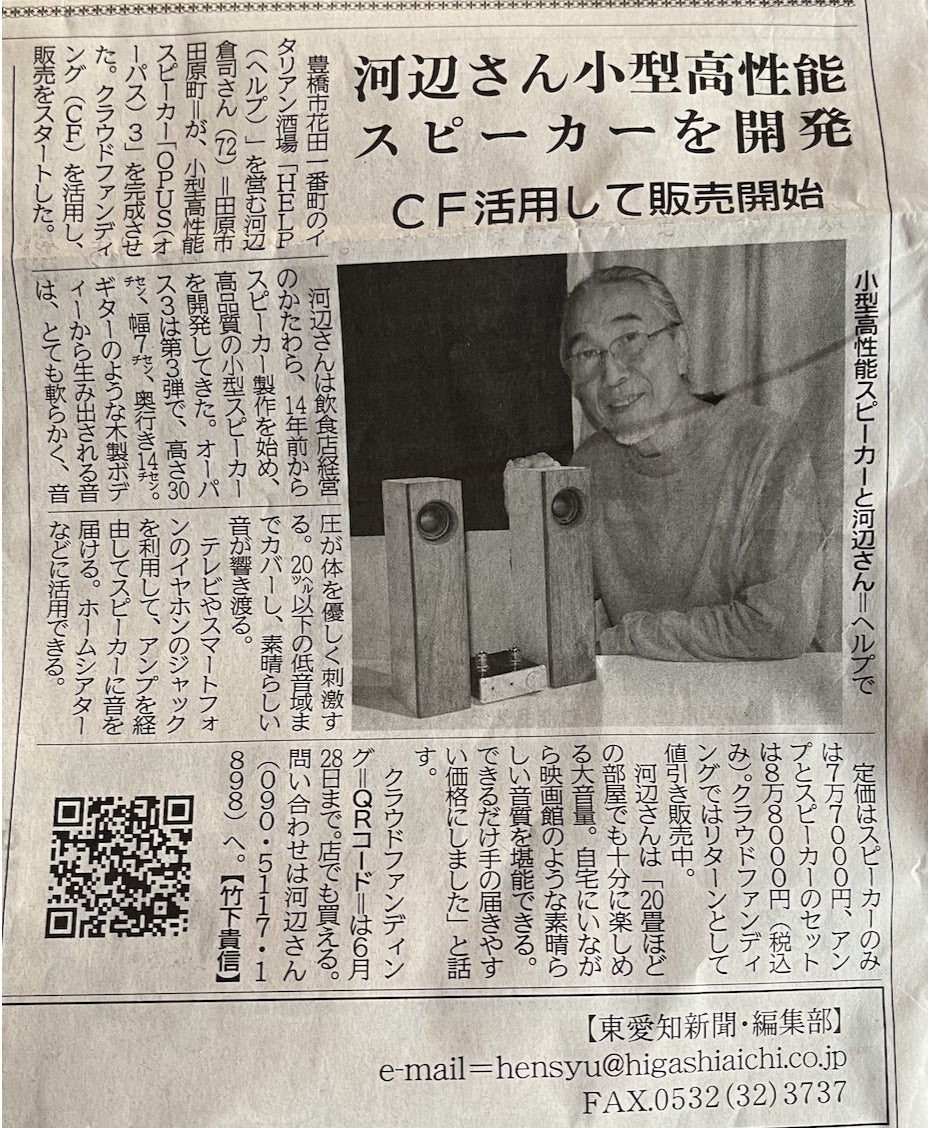 河辺さん小型高性能
スピーカーを開発
CF活用して販売開始
豊橋市花田一番町のイ
タリアン酒場「HELP
(ヘルプ)」を営む河辺
倉司さん(72)=田原市
田原町=が、小型高性能
スピーカー「OPUS(オ
ーパス)3」を完成させ
た。クラウドファンディ
ング(CF)を活用し、
販売をスタートした。
河辺さんは飲食店経営
のかたわら、14年前から
スピーカー製作を始め、
高品質の小型スピーカー
を開発してきた。オーパ
ス3は第3弾で、高さ30
㌢、幅7㌢、奥行き14㌢。
ギターのような木製ボデ
ィーから生み出される音
は、とても軟らかく、音
圧が体を優しく刺激す
る。20㌹以下の低音域ま
でカバーし、素晴らしい
音が響き渡る。
テレビやスマートフォ
ンのイヤホンのジャック
を利用して、アンプを経
由してスピーカーに音を
届ける。ホームシアター
などに活用できる。
小型高性能スピーカーと河辺さん=ヘルプで
定価はスピーカーのみ
は7万7000円、アン
プとスピーカーのセット
は8万8000円(税込
み)。クラウドファンディ
ングではリターンとして
値引き販売中。
河辺さんは「20畳ほど
の部屋でも十分に楽しめ
る大音量。自宅にいなが
ら映画館のような素晴ら
しい音質を堪能できる。
できるだけ手の届きやす
い価格にしました」と話
す。
クラウドファンディン
グ=QRコード=は6月
28日まで。店でも買える。
問い合わせは河辺さん
(090・5117・1
898)へ。【竹下貴信】
【東愛知新聞・編集部】
e-mail=hensyu@higashiaichi.co.jp
FAX.0532(32)3737